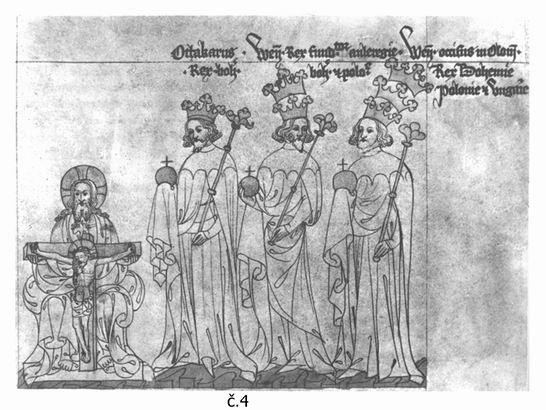 Ottakarus · Rex · boh̄ ·
Wen̄ · Rex fund auleregie ·
boh̄ · ⁊ polo
Wen̄ · occisus in Olom̄ ·
Rex Bohemie
Polonie ⁊ Ungarie
č.4